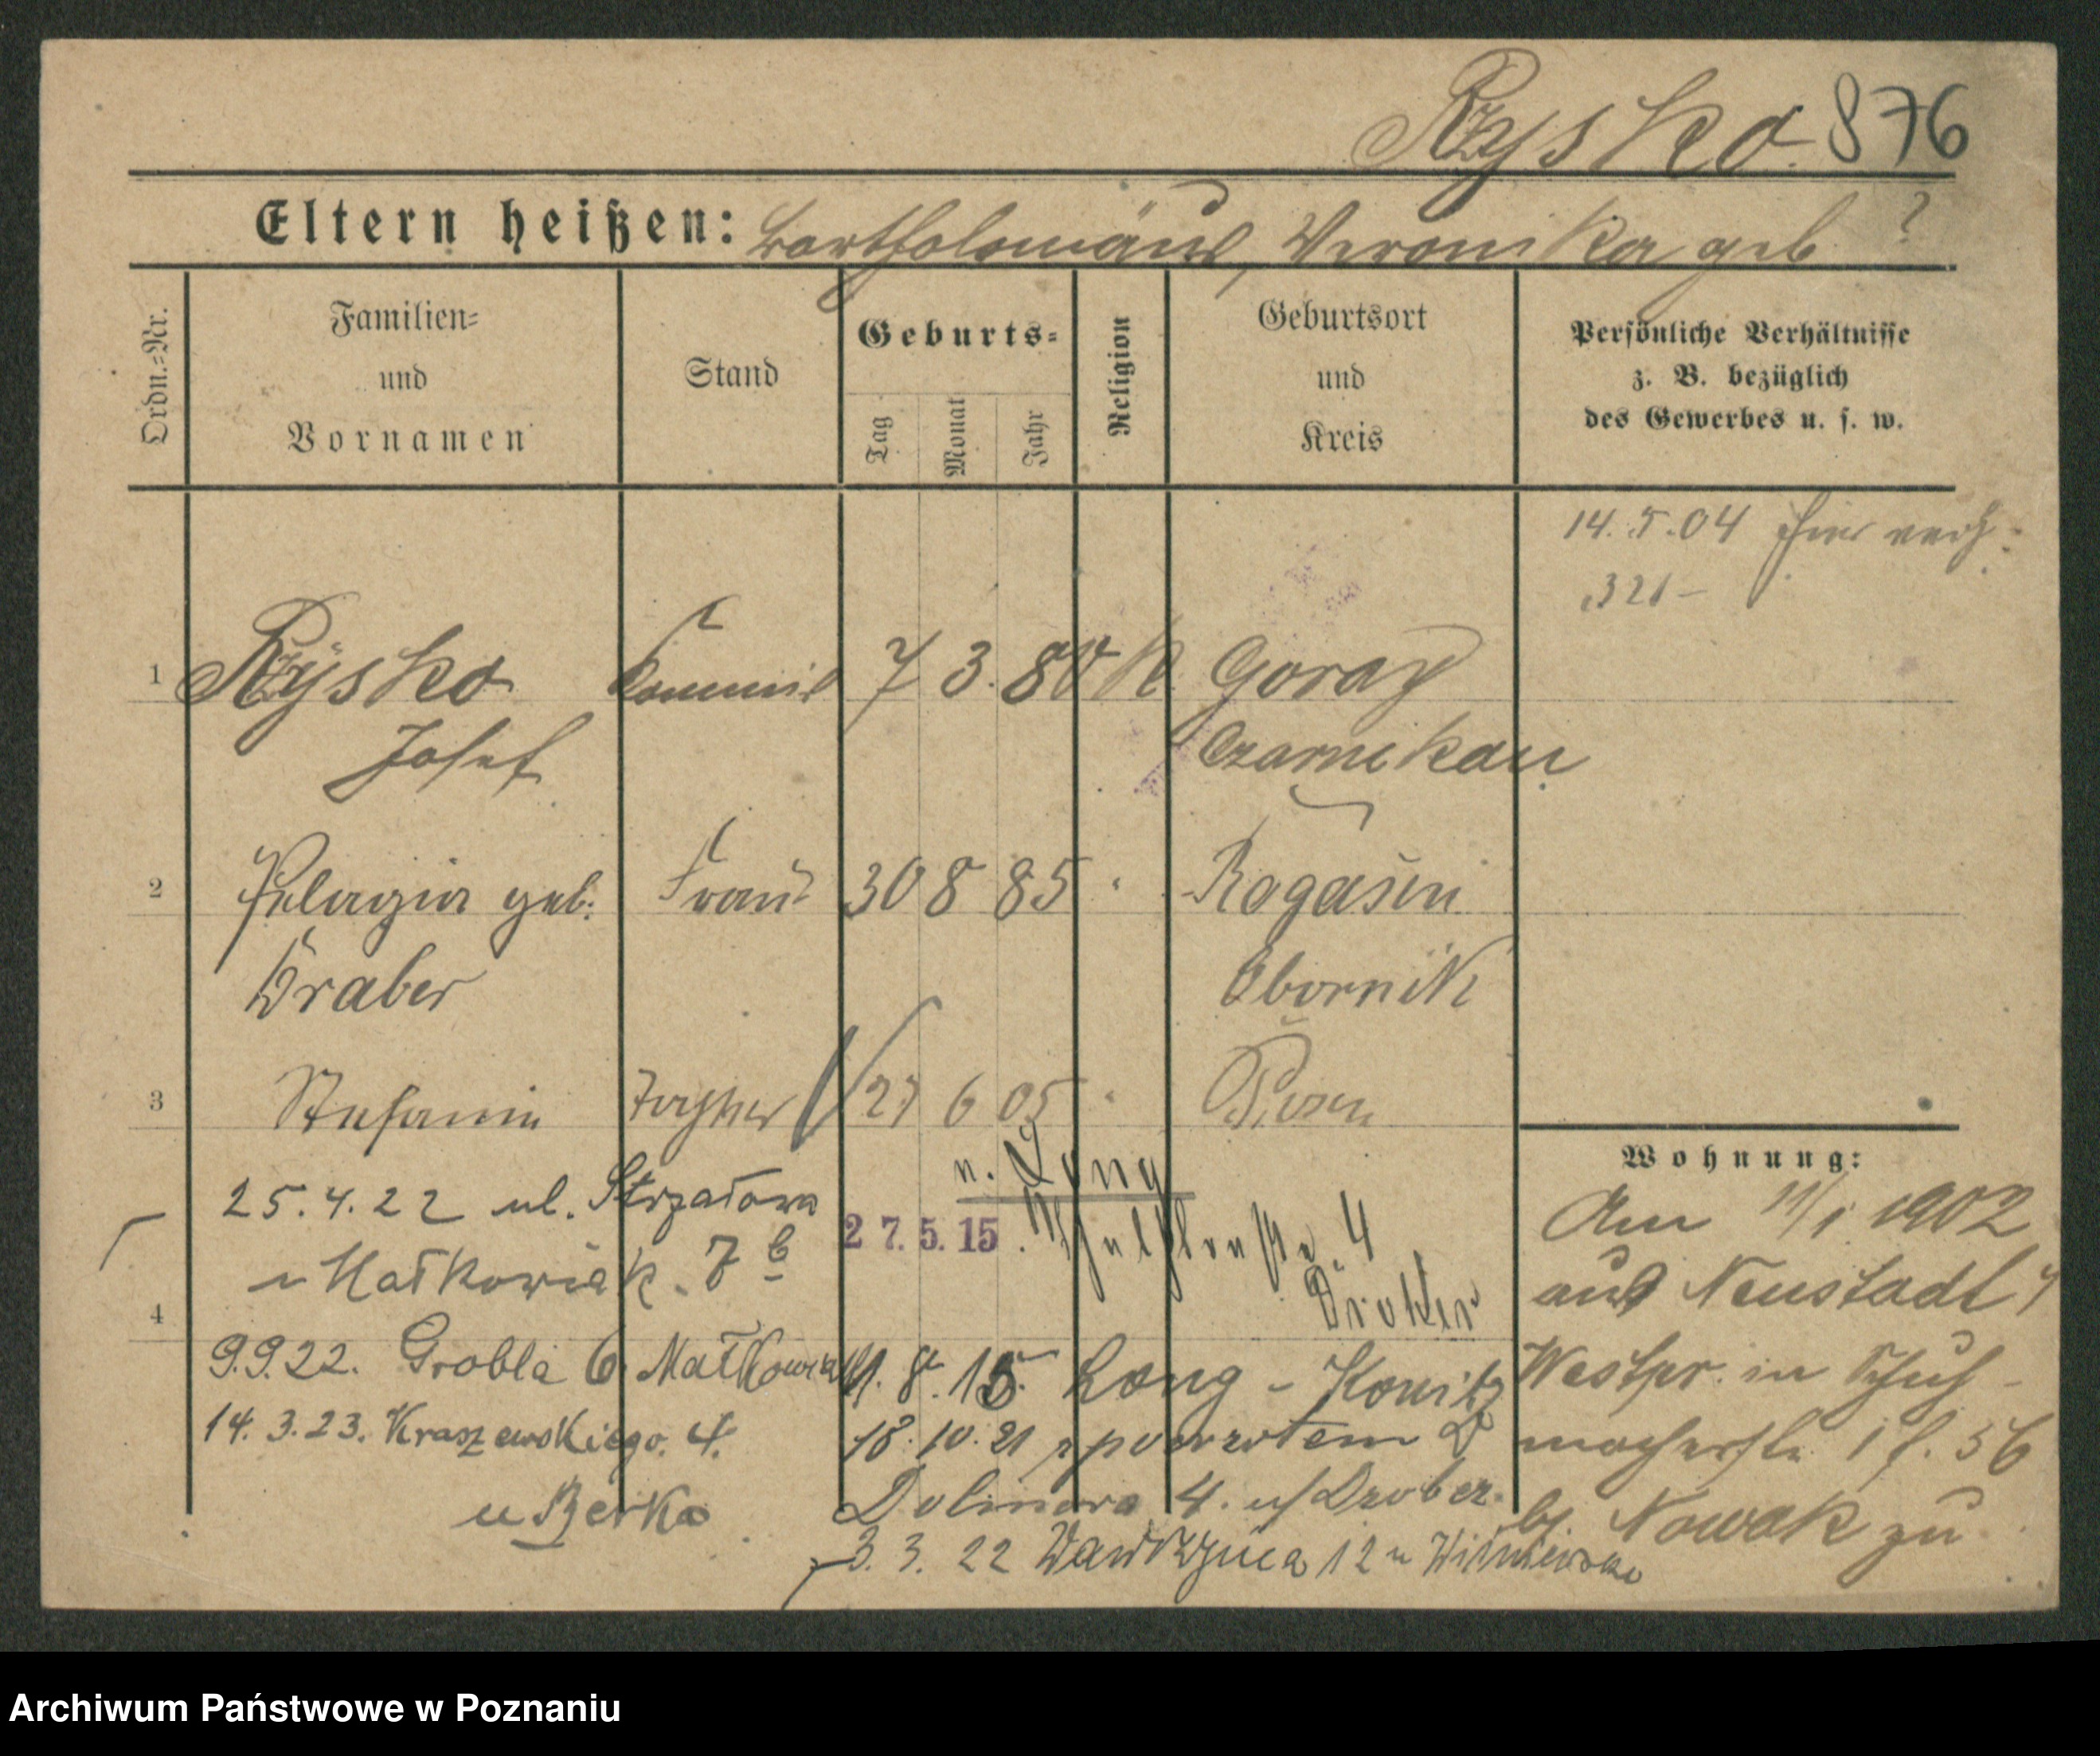 Rzysko. 876
Eltern heißen: Bartholomäus, Veronika geb ?
Ordn.-Nr.
Familien-
und
Vornamen
Stand
Geburts-
Tag
Monat
Jahr
Religion
Geburtsort
und
Kreis
Persönliche Verhältnisse
z. B. bezüglich
des Gewerbes u. s. w.
14. 5. 04 hier verh.
321 -
1 Rzysko Kommis 7 3. 80 K. Goray
Josef Czarnikau
2 Pelagia geb. Frau 30 8 85 " Rogasen
Draber Obornik
3 Stefania Tochter 27 6 05 " Posen
n. Long
25. 4. 22 ul. Strzałowa
27. 5. 15. 4
u Matkowiak. 7 b
Draber
4
9.9.22. Grobla 6. Matkowiak
14. 3. 23. Kraszewskiego. 4.
u Berka
11. 8. 15. Long - Konitz
18. 10. 21 z powrotem
Dolinowa 4. u/ Draber.
3. 3. 22 Wawrzyńca 12 u Wiśniewska
Wohnung:
Am 11/1 1902
aus Neustadt
Westpr. in Schuh-
macherstr. 1 f. 56
bj. Nowak zu
Archiwum Państwowe w Poznaniu